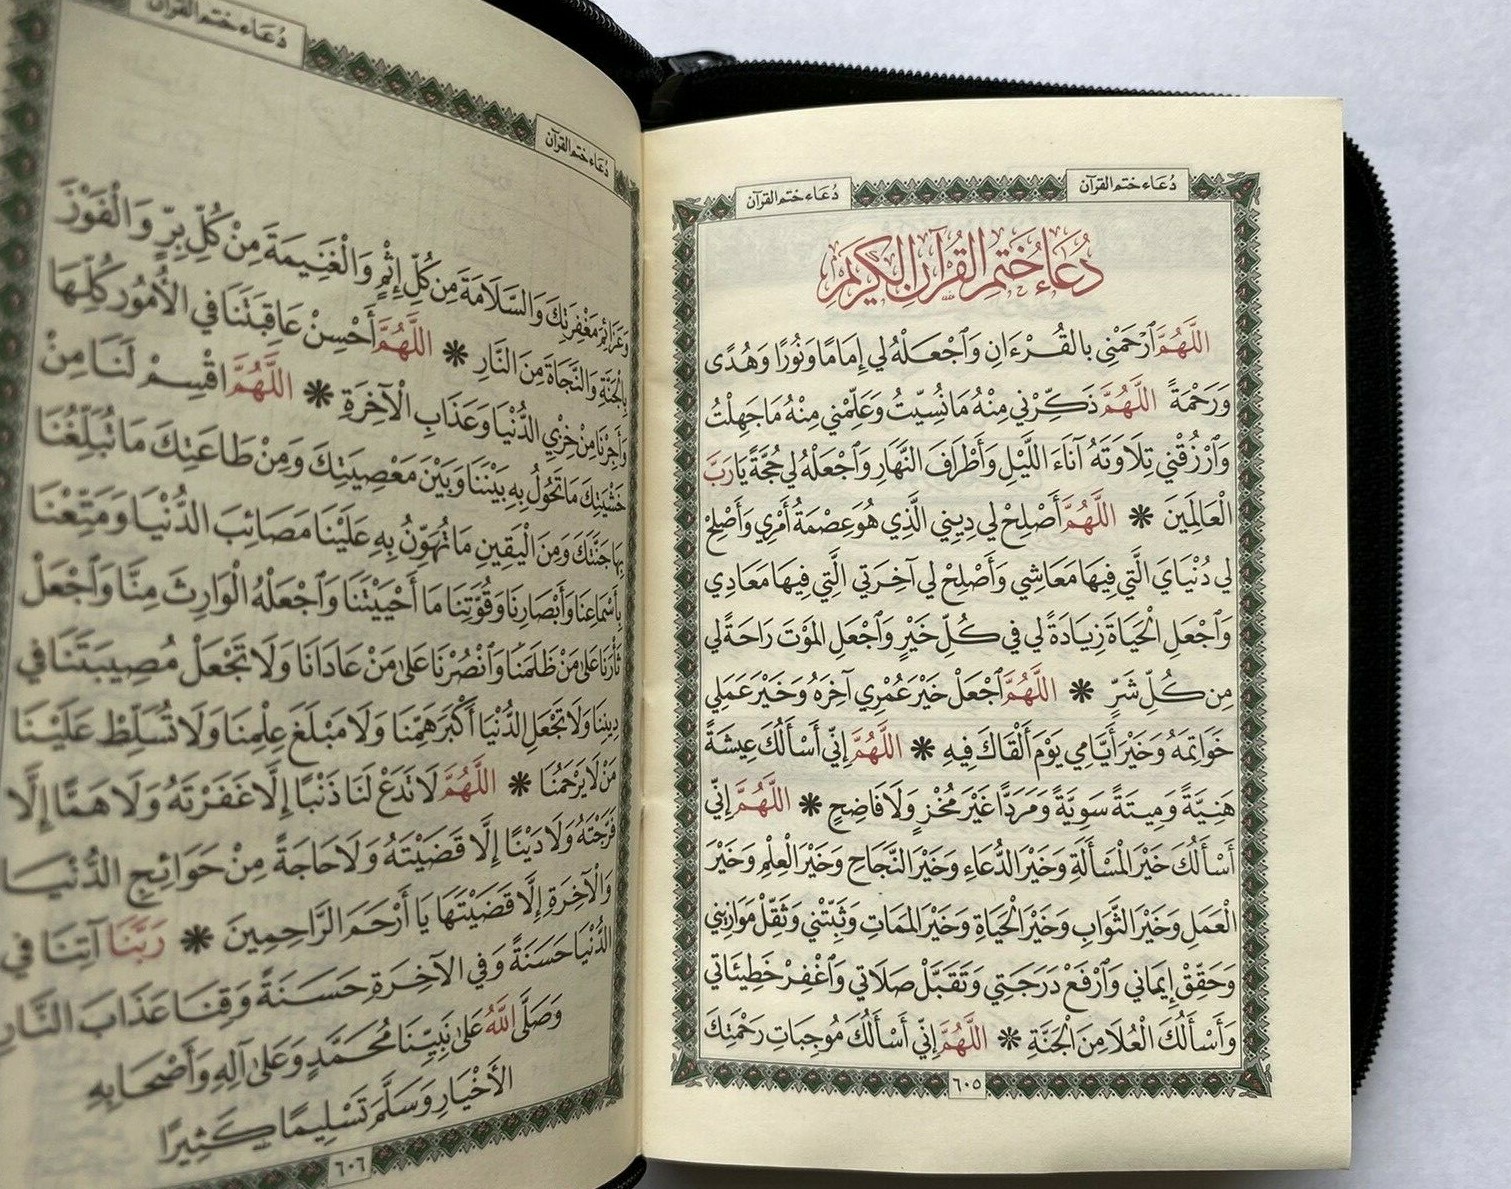 دُعَاء ختم القرآن
دُعَاء ختم القرآن
دُعَاءُ خَتْمِ القُرْآنِ الكَرِيْمِ
اللَّهُمَّ ٱرْحَمْنِي بالقُرْءَانِ وَٱجْعَلْهُ لي إِمَامًا وَنُورًا وَهُدًى
وَرَحْمَةً اللَّهُمَّ ذَكِّرْنِي مِنْهُ مَانُسِّيتُ وَعَلِّمْنِي مِنْهُ مَاجَهِلْتُ
وَٱرْزُقْنِي تِلَاوَتَهُ آنَاءَ اللَّيْلِ وَأَطْرَافَ النَّهَارِ وَٱجْعَلْهُ لِي حُجَّةً يَارَبَّ
الْعَالَمِينَ * اللَّهُمَّ أَصْلِحْ لي دِينِي الَّذِي هُوَ عِصْمَةُ أَمْرِي وَأَصْلِحْ
لي دُنْيَايَ الَّتي فِيهَا مَعَاشِي وَأَصْلِحْ لي آخِرَتي الَّتِي فِيهَا مَعَادِي
وَٱجْعَلِ الْحَيَاةَ زِيَادَةً لي في كُلِّ خَيْرٍ وَٱجْعَلِ المَوْتَ رَاحَةً لي
مِن كُلِّ شَرٍّ * اللَّهُمَّ ٱجْعَلْ خَيْرَ عُمْرِي آخِرَهُ وَخَيْرَ عَمَلِي
خَوَاتِمَهُ وَخَيْرَ أَيَّامِي يَوْمَ أَلْقَاكَ فِيهِ * اللَّهُمَّ إِنّي أَسْأَلُكَ عِيشَةً
هَنِيَّةً وَمِيتَةً سَوِيَّةً وَمَرَدًّا غَيْرَ مُخْزٍ وَلَا فَاضِحٍ * اللَّهُمَّ إِنِّي
أَسْأَلُكَ خَيْرَ الْمَسْأَلَةِ وَخَيْرَ الدُّعَاءِ وَخَيْرَ النَّجَاحِ وَخَيْرَ الْعِلْمِ وَخَيْرَ
الْعَمَلِ وَخَيْرَ الثَّوَابِ وَخَيْرَ الْحَيَاةِ وَخَيْرَ الْمَمَاتِ وَثَبِّتْنِي وَثَقِّلْ مَوَازِيني
وَحَقِّقْ إِيمَاني وَٱرْفَعْ دَرَجَتِي وَتَقَبَّلْ صَلَاتي وَٱغْفِرْ خَطِيئَاتي
وَأَسْأَلُكَ الْعُلَا مِنَ الْجَنَّةِ * اللَّهُمَّ إِنّي أَسْأَلُكَ مُوجِبَاتِ رَحْمَتِكَ
٦٠٥
دُعَاء ختم القرآن
دُعَاء ختم القرآن
وَعَزَائِمَ مَغْفِرَتِكَ وَالسَّلَامَةَ مِن كُلِّ إِثْمٍ وَالْغَنِيمَةَ مِنْ كُلِّ بِرٍّ وَالْفَوْزَ
بِالْجَنَّةِ وَالنَّجَاةَ مِنَ النَّارِ * اللَّهُمَّ أَحْسِنْ عَاقِبَتَنَا في الأُمُورِ كُلِّهَا
وَأَجِرْنَا مِنْ خِزْيِ الدُّنْيَا وَعَذَابِ الْآخِرَةِ * اللَّهُمَّ اقْسِمْ لَنَا مِنْ
خَشْيَتِكَ مَا تَحُولُ بِهِ بَيْنَنَا وَبَيْنَ مَعْصِيَتِكَ وَمِنْ طَاعَتِكَ مَا تُبَلِّغُنَا
بِهَا جَنَّتَكَ وَمِنَ الْيَقِينِ مَا تُهَوِّنُ بِهِ عَلَيْنَا مَصَائِبَ الدُّنْيَا وَمَتِّعْنَا
بِأَسْمَاعِنَا وَأَبْصَارِنَا وَقُوَّتِنَا مَا أَحْيَيْتَنَا وَٱجْعَلْهُ الْوَارِثَ مِنَّا وَٱجْعَلْ
ثَأْرَنَا عَلَىٰ مَنْ ظَلَمَنَا وَٱنْصُرْنَا عَلَىٰ مَنْ عَادَانَا وَلَا تَجْعَلْ مُصِيبَتَنَا في
دِينِنَا وَلَا تَجْعَلِ الدُّنْيَا أَكْبَرَ هَمِّنَا وَلَا مَبْلَغَ عِلْمِنَا وَلَا تُسَلِّطْ عَلَيْنَا
مَنْ لَا يَرْحَمُنَا * اللَّهُمَّ لَا تَدَعْ لَنَا ذَنْبًا إِلَّا غَفَرْتَهُ وَلَا هَمًّا إِلَّا
فَرَّجْتَهُ وَلَا دَيْنًا إِلَّا قَضَيْتَهُ وَلَا حَاجَةً مِنْ حَوَائِجِ الدُّنْيَا
وَالْآخِرَةِ إِلَّا قَضَيْتَهَا يَا أَرْحَمَ الرَّاحِمِينَ * رَبَّنَا آتِنَا في
الدُّنْيَا حَسَنَةً وَفي الآخِرَةِ حَسَنَةً وَقِنَا عَذَابَ النَّارِ
وَصَلَّى اللَّهُ عَلَىٰ نَبِيِّنَا مُحَمَّدٍ وَعَلَىٰ آلِهِ وَأَصْحَابِهِ
الأَخْيَارِ وَسَلَّمَ تَسْلِيمًا كَثِيرًا
٦٠٦